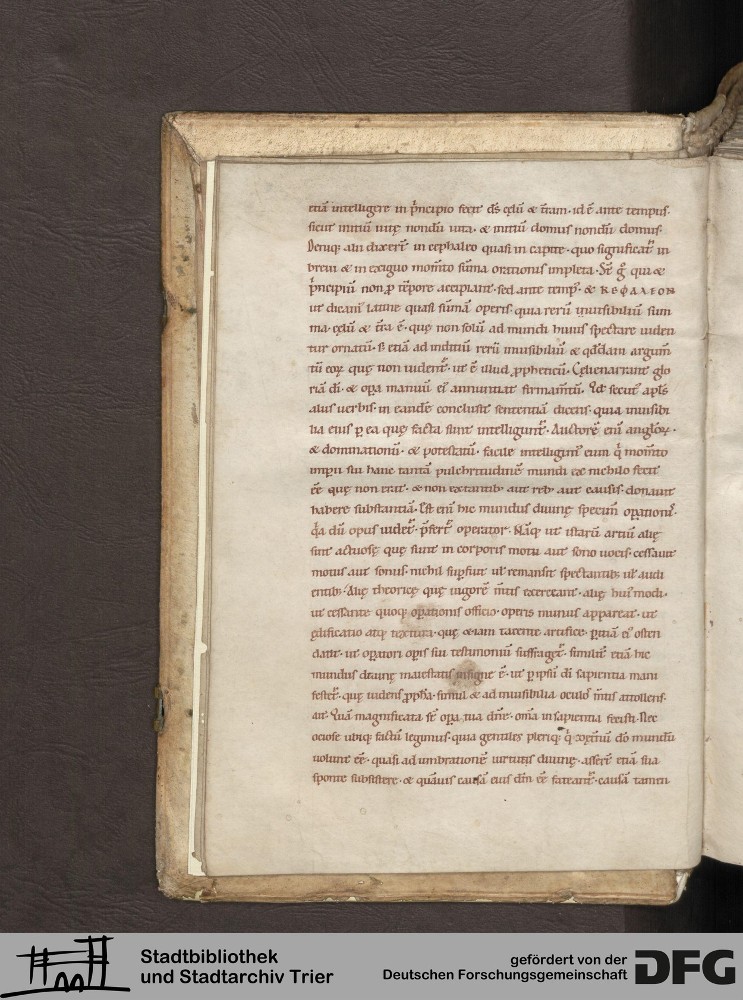 etiā intelligere in p̄ncipio fecit dꝭ cęlū & t̄ram · id ē ante tempus ·
sicut initiū uitę nondū uita · & initiū domus nondū domus ·
Deniq; alii dixer̄t in cephaleo quasi in capite · quo significat̄ in
breui & in exiguo mom̄to sūma orationis impleta · Sт̄ g̊ qui &
p̄ncipiū non ꝑ tēpore accipiant · sed ante temp᷒ · & ΚΕΦΑΛΕΟΝ
ut dicam᷒ latine quasi sūmā operis · quia rerū inuisibiliū sum
ma · cęlū & t̄ra ē · quę non solū ad mundi huius spectare uiden
tur ornatū · s; etiā ad inditiū rerū inuisibiliū & qddam argum̄
tū eoꝝ quę non uident̄ · ut ē illud ꝓpheticū · Cęli enarrant glo
riā di · & opa manuū ei᷒ annuntiat firmam̄tū · Qd secut᷒ apls̄
aliis uerbis in eandē conclusit sententiā dicens · quia inuisibi
lia eius ꝑ ea quę facta sunt intelligunt̄ · Auctorē eni angłoꝝ ·
& dominationū · & potestatū · facile intelligim᷒ eum qͥ mom̄to
imperii sui hanc tantā pulchritudinē mundi ex nichilo fecit
ēē quę non erat · & non extantib; aut reb; aut causis · donauit
habere substantiā · Est eni hic mundus diuinę specim̄ opationis ·
qͥa dū opus uidet̄ · p̄fert̄ operator · Nāq; ut istarū artiū alię
sint actuosę quę sunt in corporis motu aut sono uocis · cessauit
motus aut sonus · nichil suꝑfuit ul remansit spectantib; ul audi
entib; · Alię theoricę quę uigorē m̄tis exerceant · alię hui᷒modi ·
ut cessante quoq; opationis officio · operis munus appareat · ut
ędificatio atq; textura · quę etiam tacente artifice · ꝑitiā ei᷒ osten
dant · ut opatori opis sui testimoniū suffraget̄ · similit̄ etiā hic
mundus diuinę maiestatis insigne ē · ut ꝑ ipsū di sapientia mani
festet̄ · quę uidens ꝓpha · simul & ad inuisibilia oculos m̄tis attollens ·
ait · Quā magnificata sт̄ opa tua dn̄e · om̄ia in sapientia fecisti · Nec
ociose utiq; factū legimus · quia gentiles pleriq; qͥ coęt̄nū dō mundū
uolunt ēē · quasi adumbrationē uirtutis diuinę · asser̄t etiā sua
sponte subsistere · & quāuis causā eius dm̄ ēē fateant̄ · causā tamen
Stadtbibliothek
und Stadtarchiv Trier
gefördert von der
Deutschen Forschungsgemeinschaft
DFG